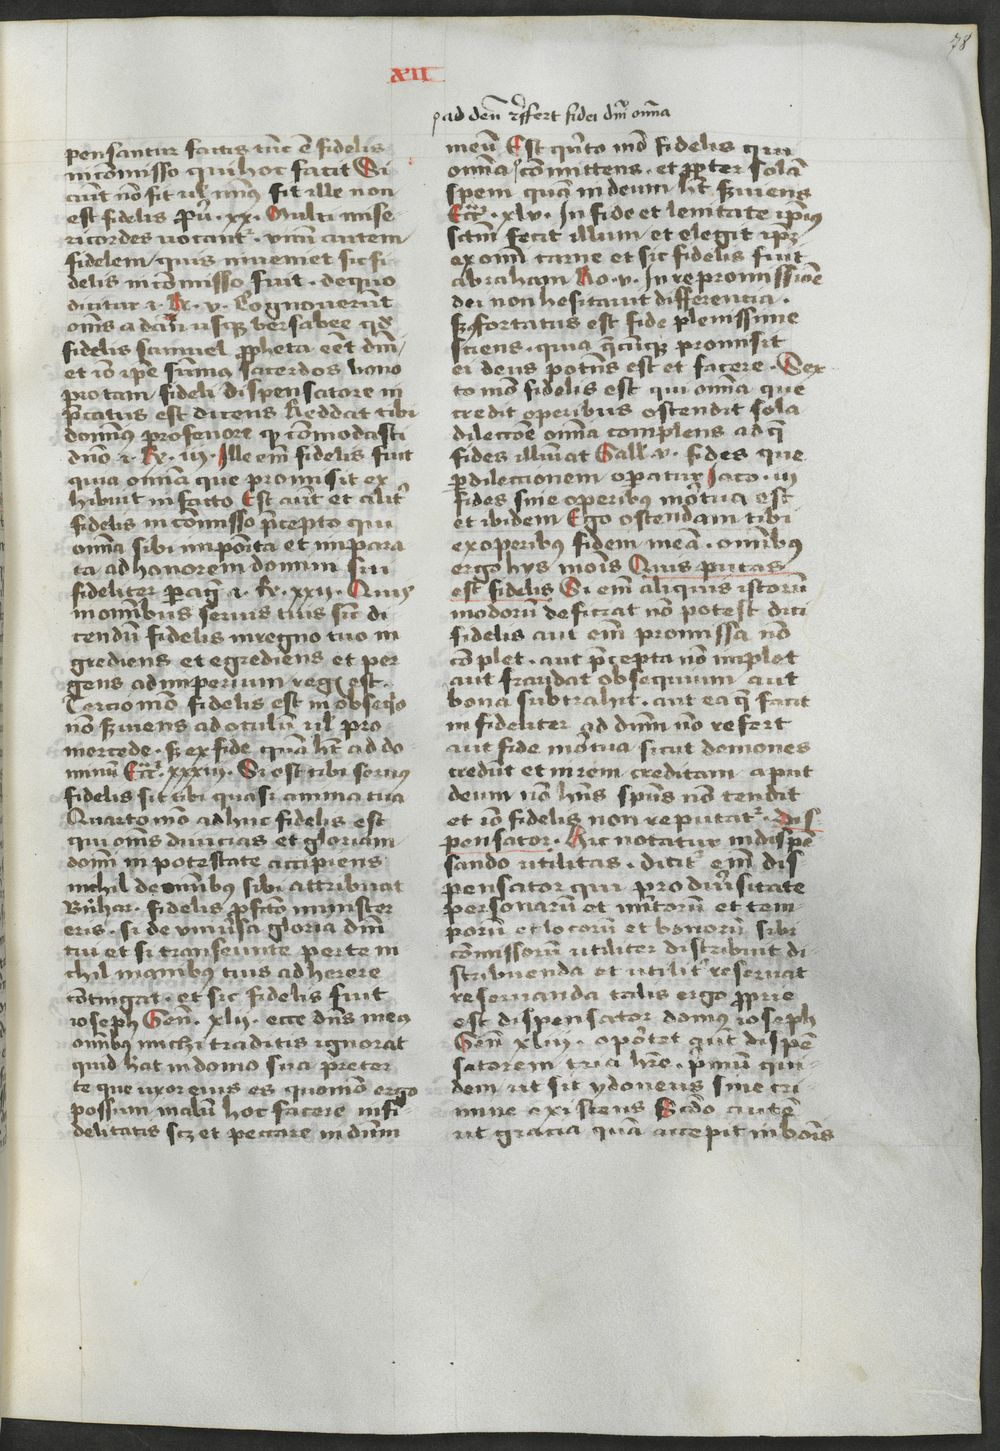 78
XII
ad deū refert fidei dm̄ om̄ia
pensantur factis tūc ē fidelis
in cōmisso qui hoc facit Si
aūt nō fit ul' min⁹ fit ille non
est fidelis p̄u . xx . Multi mise
ricordes uocant² . virū autem
fidelem quis inueniet sic fi
delis in cōmisso fuit . de quo
dicitur 1 . R̄ . v . Cognouerūt
om̄s a dan usq̨ bersabee qd̄
fidelis samuel ꝓpheta eēt dn̄i
et iō ip̄e sūm⁹ sacerdos bono
pro tam fideli dispensatore in
p̄catus est dicens Reddat tibi
domin⁹ pro fenore qd̄ cōmodasti
dn̄o 1 . R̄ . iii . Ille em̄ fidelis fuit
quia om̄ia que promisit ex
hibuit in facto Est aūt et alit̄
fidelis in cōmisso p̄cepto qui
om̄ia sibi imposita et impara
ta ad honorem domini sui
fideliter ꝑagit 1 . R̄ . xxii . Quis
in omībus seruis tuis sic di
cendū fidelis in regno tuo in
grediens et egrediens et per
gens ad imperium regis est .
Tercio mō fidelis est in obseq̄o
nō s̄uiens ad oculū ul' pro
mercede . s̨ ex fide quā h̄t ad do
minū Ecc̄i . xxxiii . Si est tibi seru⁹
fidelis sit tibi quasi anima tua
Quarto mō ad huc fidelis est
qui om̄s diuicias et gloriam
domī in potestate accipiens
nichil de omībus sibi attribuat
Bn̄har . fidelis ꝓfcō minister
eris . si de vniūsa gloria dn̄i
tui et si transeunte per te ni
chil manib⁹ tuis adherere
cōtingat . et sic fidelis fuit
ioseph Gen̄ . xlii . ecce dn̄s me⁹
omīb⁹ michi traditis ignorat
quid h̄at in domo sua preter
te que uxor eius es quomō ergo
possum malū hoc facere infi
delitatis scz et peccare in dn̄m
meū Est qn̄to mō fidelis qui
om̄ia cōmittens . et ꝓpter solā
spem quā in deum h̄t s̄uiens
Ecc̄i . xlv . In fide et lenitate ip̄ius
sc̄m fecit illum et elegit ip̄ȝ
ex om̄i carne et sic fidelis fuit
abraham Ro . v . In repromissiōe
dei non hesitauit differencia .
s̨ ꝯfortatus est fide plenissime
sciens . quia q̄cūq̨ promisit
ei deus potēns est et facere . Sex
to mō fidelis est qui om̄ia que
credit operibus ostendit sola
dilectōe om̄ia complens ad q̄
fides illumīat Gall . v . fides que
ꝑ dilectionem opatur Jaco . ii
fides sine operibus mortua est
et ibidem Ego ostendam tibi
ex operib⁹ fidem meā . omīb⁹
ergo hys mōis Quis putas
est fidelis Si em̄ aliquis istorū
modorū deficiat nō potest dici
fidelis aut em̄ promissa nō
cōplet . aut p̄cepta nō implet
aut fraudat obsequium aut
bona subtrahit . aut ea q̄ facit
infideliter ad dn̄m nō refert
aut fide mortua sicut demones
credūt et in rem creditam aput
deum nō h̄ns sp̄ns nō tendit
et iō fidelis non reputat² . Dis
pensator . Hic notatur in dispē
sando utilitas . dicit² em̄ dis
pensator qui pro diūsitate
personarū et mītorū et tem
porū et locorū et bonorū sibi
cōmissorū utiliter distribuit di
stribuenda et utilit̄ reseruat
reseruanda talis ergo ꝓprie
est dispensator dom⁹ ioseph
Gen̄ xliii . oportet aūt dispē
satorem tria h̄re . p̄mū qui
dem ut sit ydoneus sine cri
mine existens Scdo autē
ut gracia quā accepit in bōis